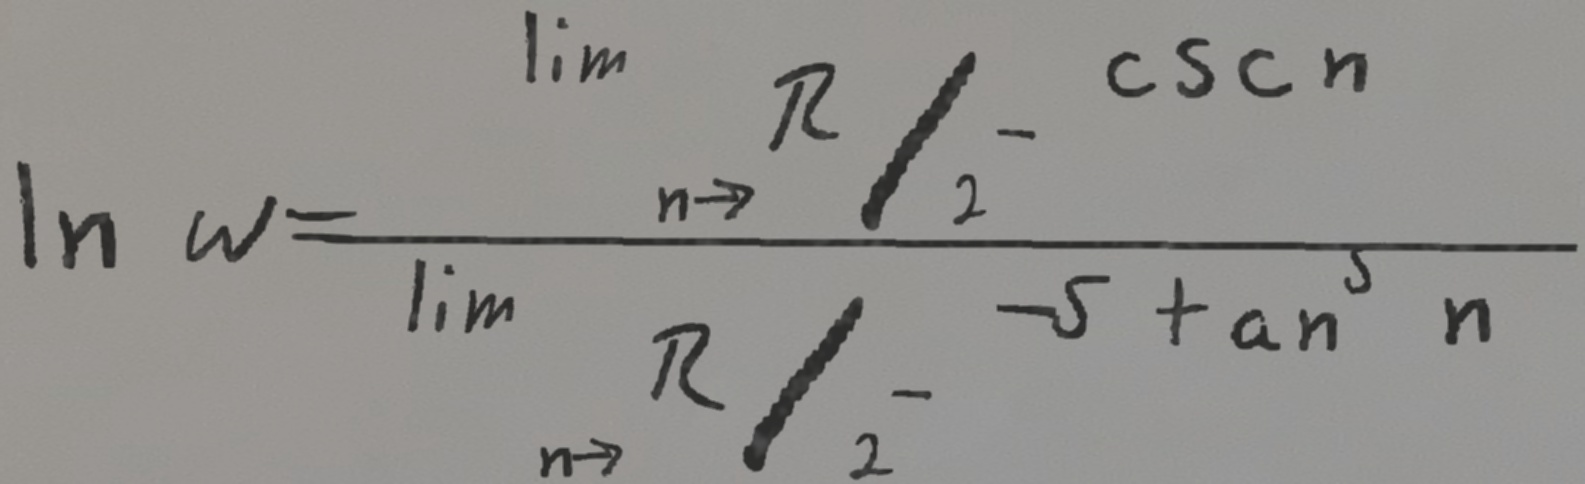 ln w = \frac{\lim_{n \to \mathcal{R}/2^-} \csc n}{\lim_{n \to \mathcal{R}/2^-} -5 \tan^5 n}